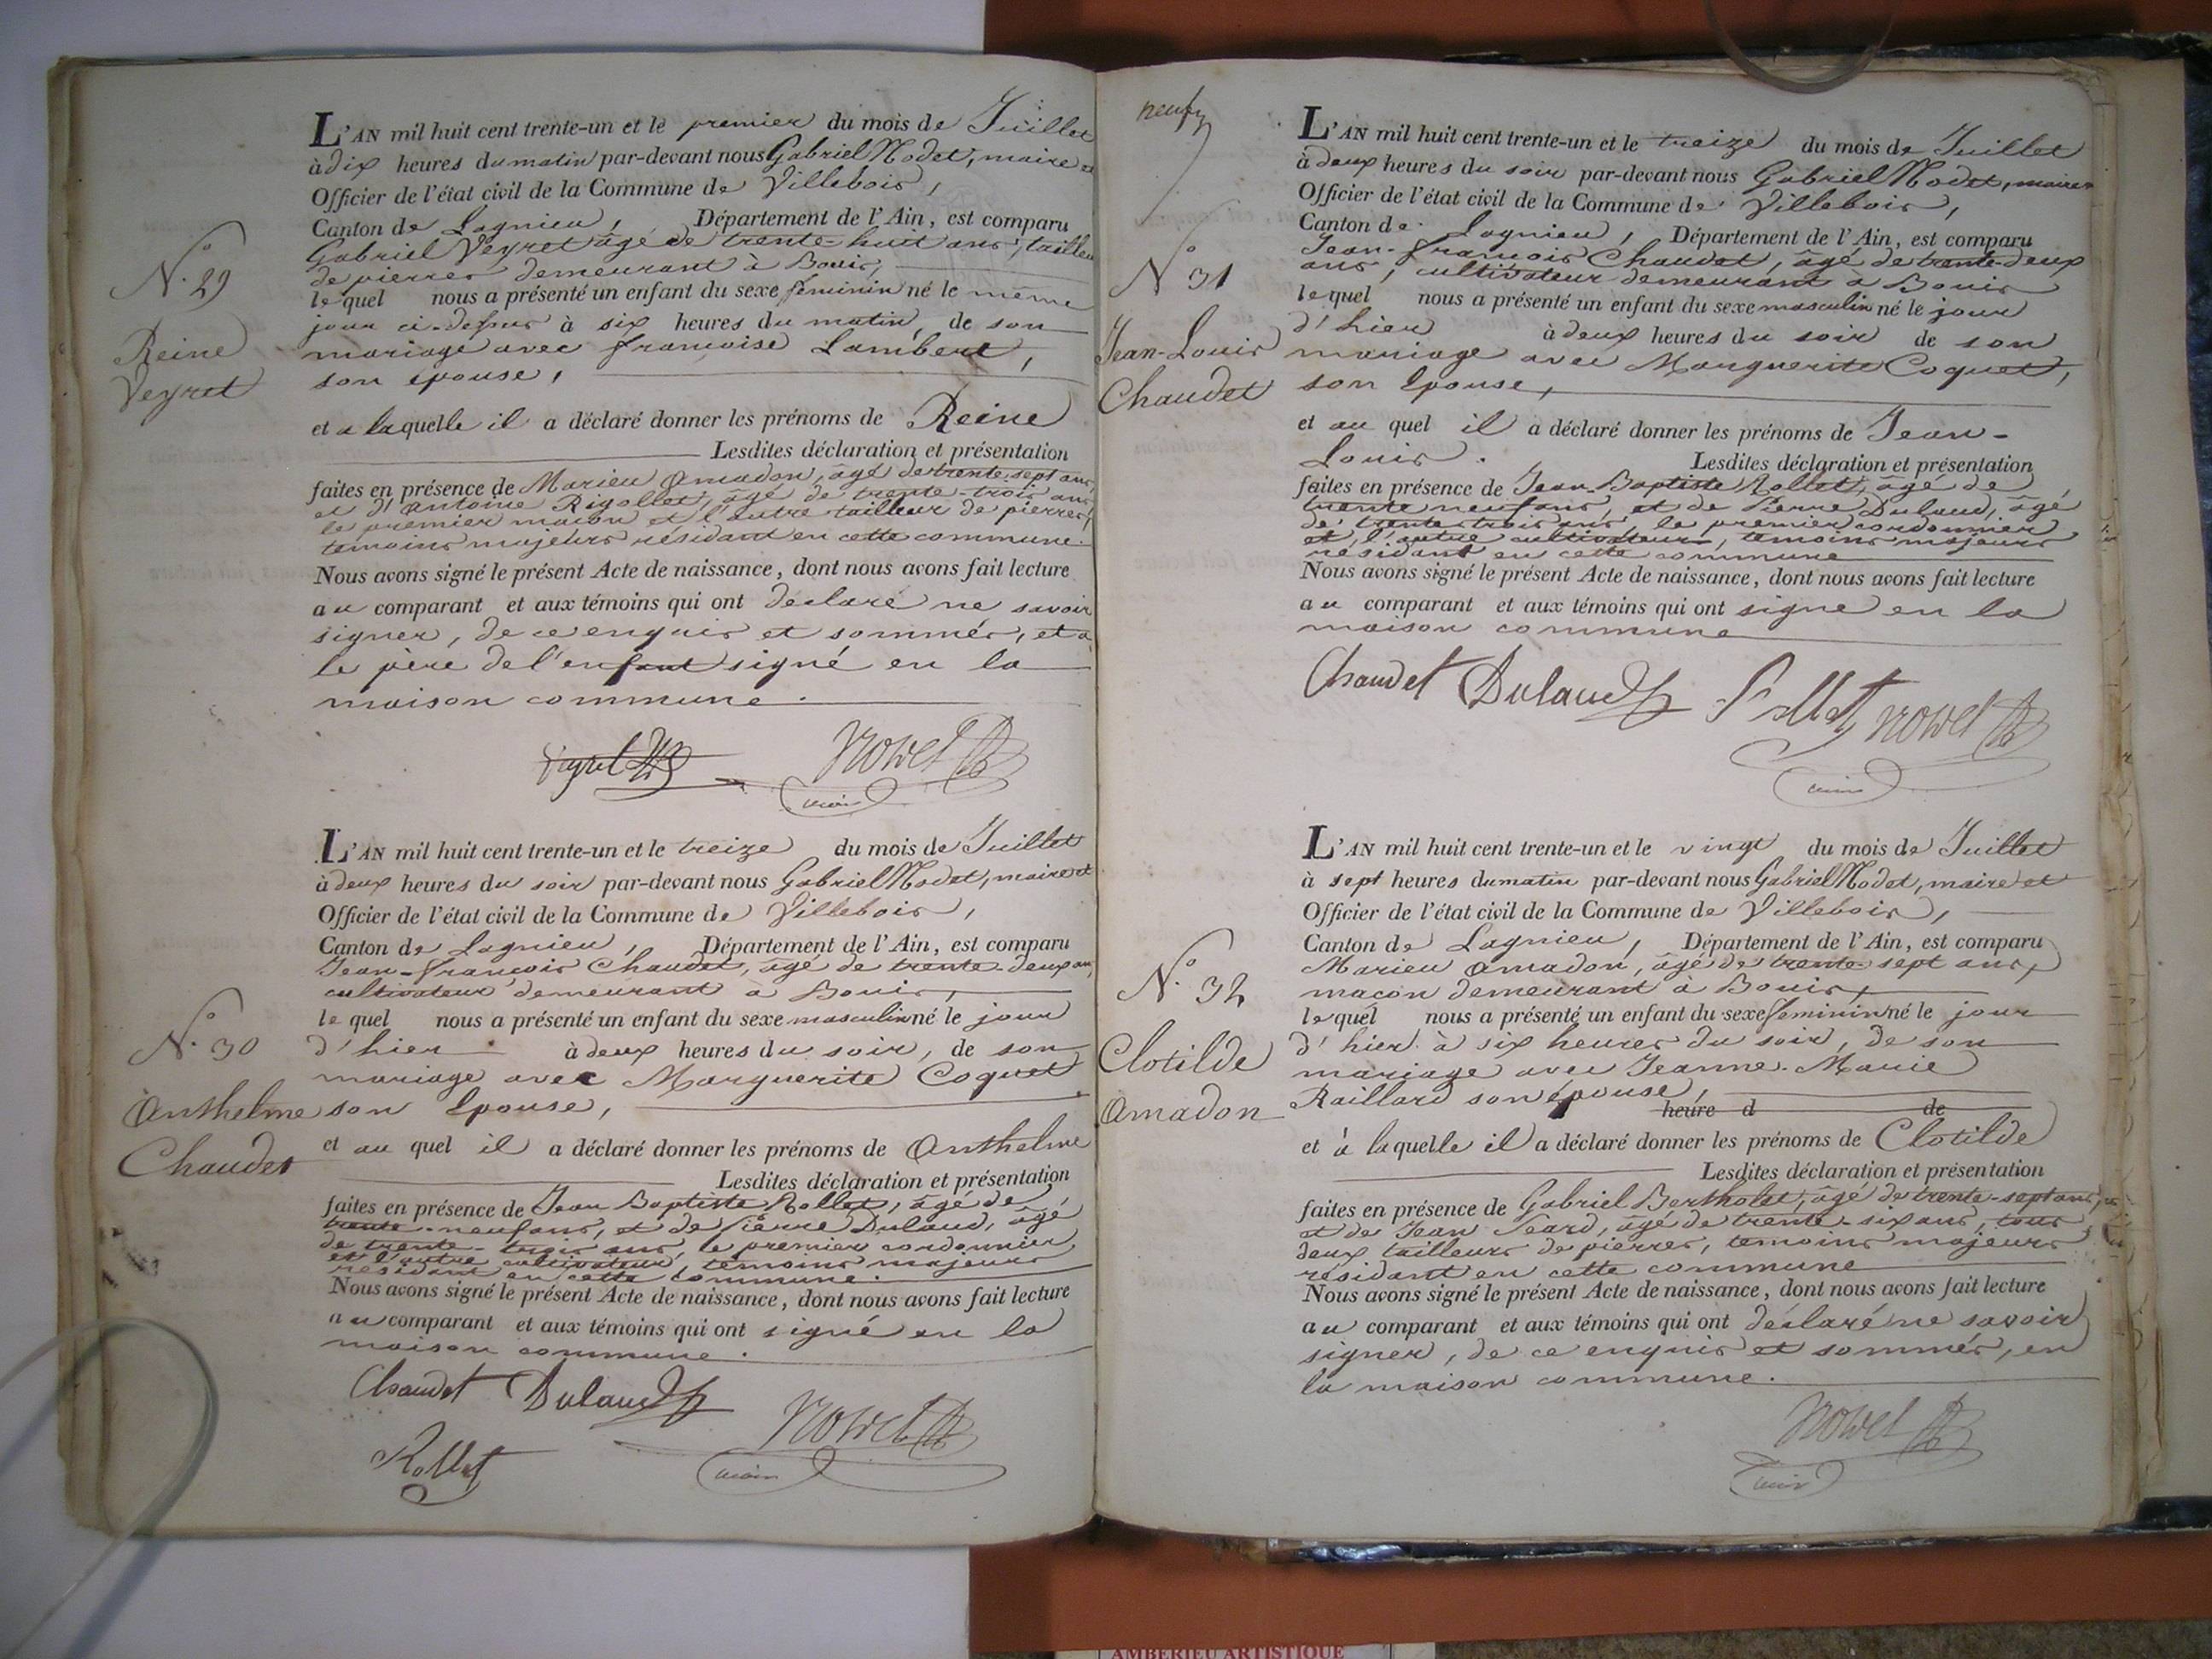 L'AN mil huit cent trente-un et le premier du mois de Juillet
à dix heures du matin par-devant nous Gabriel Nodet, maire et
Officier de l'état civil de la Commune de Villebois,
Canton de Lagnieu, Département de l'Ain, est comparu
Gabriel Veyret âgé de trente-huit ans, tailleur
de pierres demeurant à Bouis,
N.° 29
Reine
Veyret
le quel nous a présenté un enfant du sexe féminin né le même
jour ci-dessus à six heures du matin, de son
mariage avec françoise Lambert,
son épouse,
et a laquelle il a déclaré donner les prénoms de Reine
Lesdites déclaration et présentation
faites en présence de Marieu Amadon, âgé de trente-sept ans,
et d'Antoine Rigollet, âgé de trente-trois ans
le premier macon et l'autre tailleur de pierres,
temoins majeurs résidant en cette commune.
Nous avons signé le présent Acte de naissance, dont nous avons fait lecture
au comparant et aux témoins qui ont déclaré ne savoir
signer, de ce enquis et sommés, et a
le père de l'enfant signé en la
maison commune.
L'AN mil huit cent trente-un et le treize du mois de Juillet
à deux heures du soir par-devant nous Gabriel Nodet, maire et
Officier de l'état civil de la Commune de Villebois,
Canton de Lagnieu, Département de l'Ain, est comparu
Jean-françois Chaudet, âgé de trente-deux ans,
cultivateur demeurant à Bouis,
N.° 30
Anthelme
Chaudet
le quel nous a présenté un enfant du sexe masculin né le jour
d'hier à deux heures du soir, de son
mariage avec Marguerite Coquet
son épouse,
et au quel il a déclaré donner les prénoms de Anthelme
Lesdites déclaration et présentation
faites en présence de Jean Baptiste Rollet, âgé de
trente-neuf ans, et de Pierre Dulaud, âgé
de trente-trois ans, le premier cordonnier
et l'autre cultivateur, temoins majeurs
résidant en cette commune.
Nous avons signé le présent Acte de naissance, dont nous avons fait lecture
au comparant et aux témoins qui ont signé en la
maison commune.
Chaudet Dulaud
Rollet
neuf
L'AN mil huit cent trente-un et le treize du mois de Juillet
à deux heures du soir par-devant nous Gabriel Nodet, maire
Officier de l'état civil de la Commune de Villebois,
Canton de Lagnieu, Département de l'Ain, est comparu
Jean-françois Chaudet, âgé de trente-deux
ans, cultivateur demeurant à Bouis
N.° 31
Jean-Louis
Chaudet
le quel nous a présenté un enfant du sexe masculin né le jour
d'hier à deux heures du soir de son
mariage avec Marguerite Coquet,
son épouse,
et au quel il a déclaré donner les prénoms de Jean-
Louis. Lesdites déclaration et présentation
faites en présence de Jean-Baptiste Rollet, âgé de
trente neuf ans, et de Pierre Dulaud, âgé
de trente trois ans, le premier cordonnier
et l'autre cultivateur, temoins majeurs
résidant en cette commune
Nous avons signé le présent Acte de naissance, dont nous avons fait lecture
au comparant et aux témoins qui ont signé en la
maison commune
Chaudet Dulaud
L'AN mil huit cent trente-un et le vingt du mois de Juillet
à sept heures du matin par-devant nous Gabriel Nodet, maire et
Officier de l'état civil de la Commune de Villebois,
Canton de Lagnieu, Département de l'Ain, est comparu
Marieu Amadon, âgé de trente-sept ans,
macon demeurant à Bouis,
N.° 32
Clotilde
Amadon
le quel nous a présenté un enfant du sexe féminin né le jour
d'hier à six heures du soir, de son
mariage avec Jeanne-Marie
Raillard son épouse,
heure d de
et à laquelle il a déclaré donner les prénoms de Clotilde
Lesdites déclaration et présentation
faites en présence de Gabriel Bertholet, âgé de trente-sept ans,
et de Jean Seard, âgé de trente-six ans, tous
deux tailleurs de pierres, temoins majeurs
résidant en cette commune
Nous avons signé le présent Acte de naissance, dont nous avons fait lecture
au comparant et aux témoins qui ont déclaré ne savoir
signer, de ce enquis et sommés, en
la maison commune.
AMBERIEU ARTISTIQUE